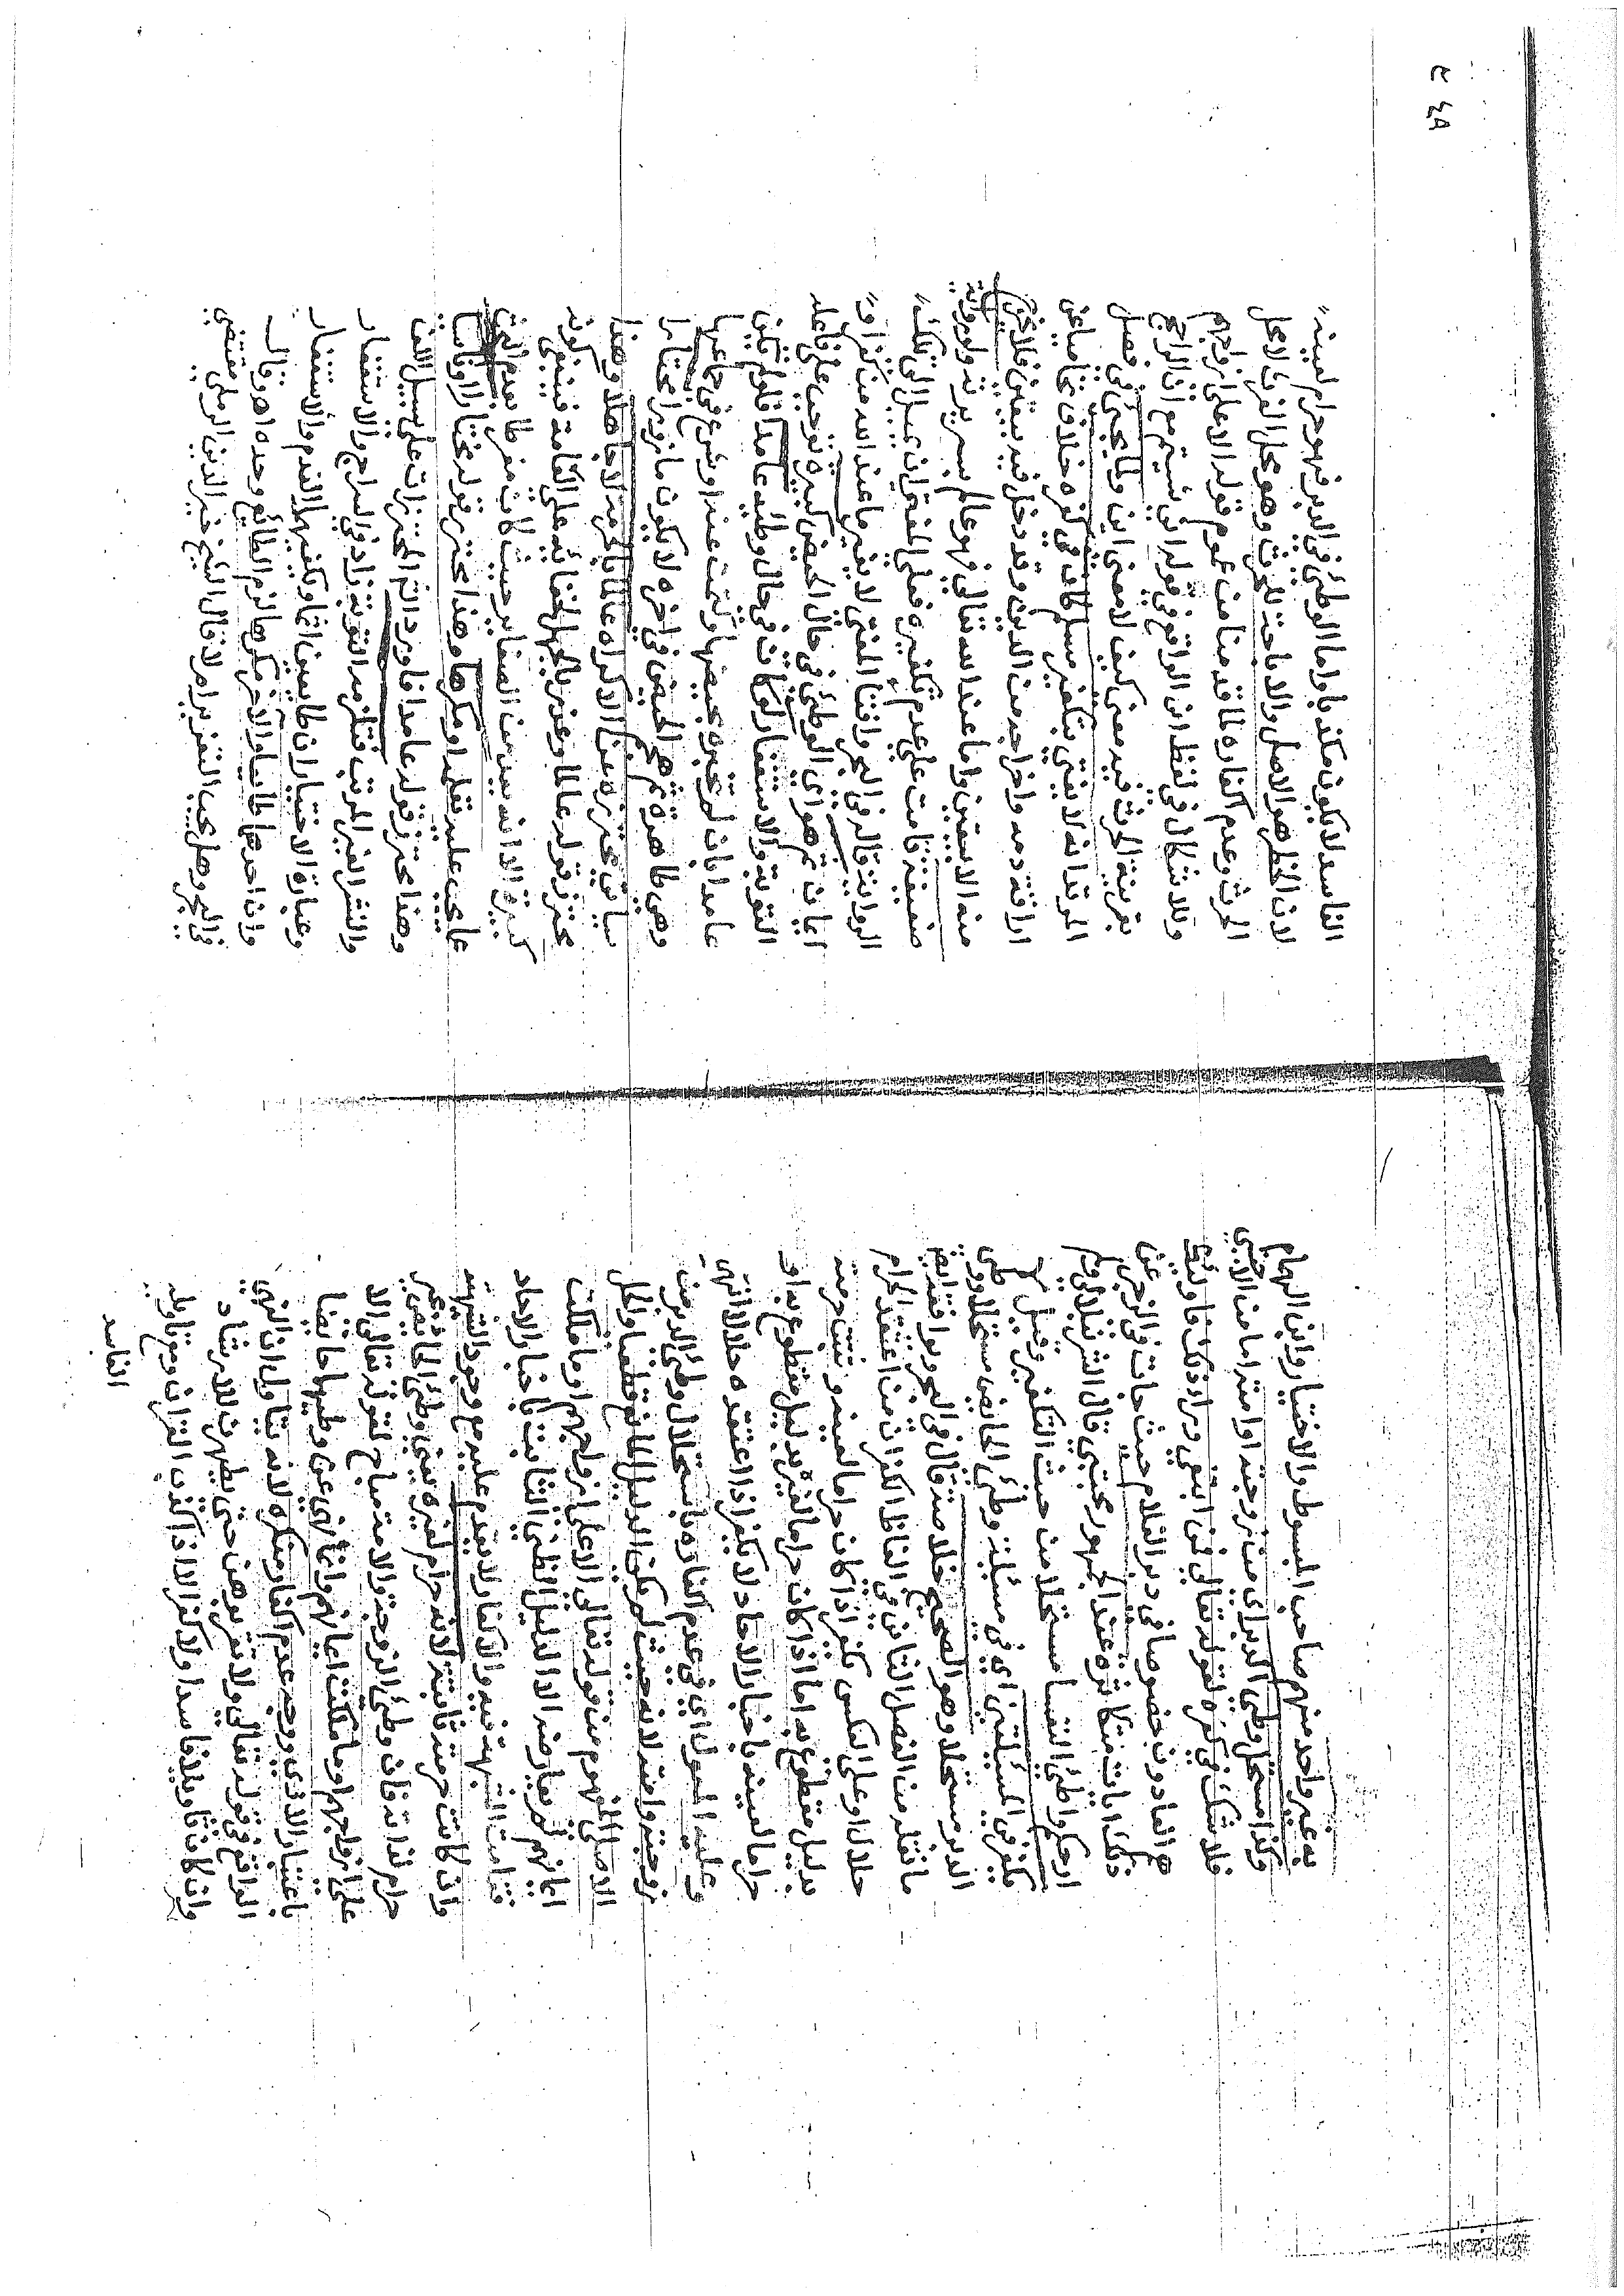 به غير واحد منهم صاحب المبسوط والاختيار وابن الهمام
وكذا مستحل وطئ الدبر اى من زوجته او امته اما من الاجنبي
فلا شك في كفره لقوله تعالى فمن ابتغى وراء ذلك فاولئك
هم العادون خصوصا في دبر الغلام حيث جات في الزجر عن
ذلك ايات متكاثرة عند الجمهور مجتبي قال الشرنبلالي ولم
ار حكم واطئ النفسا مستحلا من حيث التكفير وقيل لا
يكفر في المسئلتين اى في مسئلة وطئ الحايض مستحلا ووطئ
الدبر مستحلا وهو الصحيح خلاصة قال في البحر ويوافقه ايضا
ما نقله من الفصل الثاني في الفاظ الكفر ان من اعتقد الحرام
حلالا او على العكس يكفر اذا كان حراما لعينه وثبتت حرمته
بدليل مقطوع به اما اذا كان حراما لغيره بدليل مقطوع به او
حراما لعينه باخبار الاحاد لا يكفر اذا اعتقده حلالا انتهى
وعليه المعول اي في عدم اكفاره باستحلال وطئ الدبر من
زوجته وامته لانه حيث لم يكن الدليل المانع قطعيا والحل
الاصلي المفهوم من قوله تعالى الا على ازواجهم او ما ملكت
ايمانهم لم يعارضه الا الدليل الظني الثابت باخبار الاحاد
قامت الشبهة فيه والاكفار لا يقدم عليه مع وجود الشبهة
وان كانت حرمته ثابتة لانه حرام لغيره يعني وطئ الحايض غير
حرام لذاته فان وطئ الزوجة والامة مباح لقوله تعالى الا
على ازواجهم او ما ملكت ايمانهم وانما نهى عن وطيها حايضا
باعتبار الاذى ووجه عدم اكفار منكره لانه يتاول ان النهي
الواقع في قوله تعالى ولا تقربوهن حتى يطهرن للارشاد
وان كان تاويلا فاسدا ولا كفر الا اذا كذب القران ومع تاويله
الفاسد
الفاسد لا يكون مكذبا واما الوطئ في الدبر فهو حرام لعينه
لان الحظر هو الاصل والاباحة للحرث وهو محل الفرج لا محل
الحرث وعدم اكفاره لما قدمنا من عموم قوله الا على ازواجهم
ولا اشكال في لفظ ان الواقع في قوله انى شئتم مع ان الراجح
بقرينة الحرث فيه معنى كيف لا معنى اين ولما يجئ في فصل
المرتد انه لا يفتى بتكفير مسلم كان في كفره خلاف تحاميا عن
اراقة دمه واخراجه من الدين وقد دخل فيه بيقين فلا يخرج
منه الا بيقين واما عند الله تعالى فهو عالم بسريرته ولو رواية
ضعيفة قامت على عدم تكفيره فعلى المفتي ان يميل الى تلك
الرواية قال في البحر وافتا المفتي لا يغير ما عند الله من كفر او
ايمان ثم هو اى الوطئ في حال الحيض كبيرة توجب على فاعله
التوبة والاستغفار لو كان في حال وطئه عامدا فلو لم يكن
عامدا بان لم تخبره بحيضها وثبت عنه او شرع في جماعها
وهى طاهرة ثم هجم الحيض في اخره لا يكون مازورا مختارا
سياتي محترزه عن الاكراه عالما بالحرمة لا جاهلا وهذا
محترز قوله عالما وعذر بالجهل لخفائه على العامة فينبغي كونه
كبيرة الا انه يعد من الصغاير حيث كان مفرطا بعدم البحث
عما يجب عليه تعلمه او مكرها وهذا محترز قوله مختارا او ناسيا
وهذا محترز قوله عامدا فاورد اثر المحترزات على سبيل اللف
والنشر الغير المرتب فتلزمه التوبة زاد في السراج والاستغفار
وعبارة الاختيار ان طايعين اثما ويكفيهما الندم والاستغفار
وان احدهما طايعا والاخر مكرها اثم الطائع وحده اهـ وقال
في البحر وهل يجب التعزير ام لا قال الشيخ خير الدين الرملي مقتضى